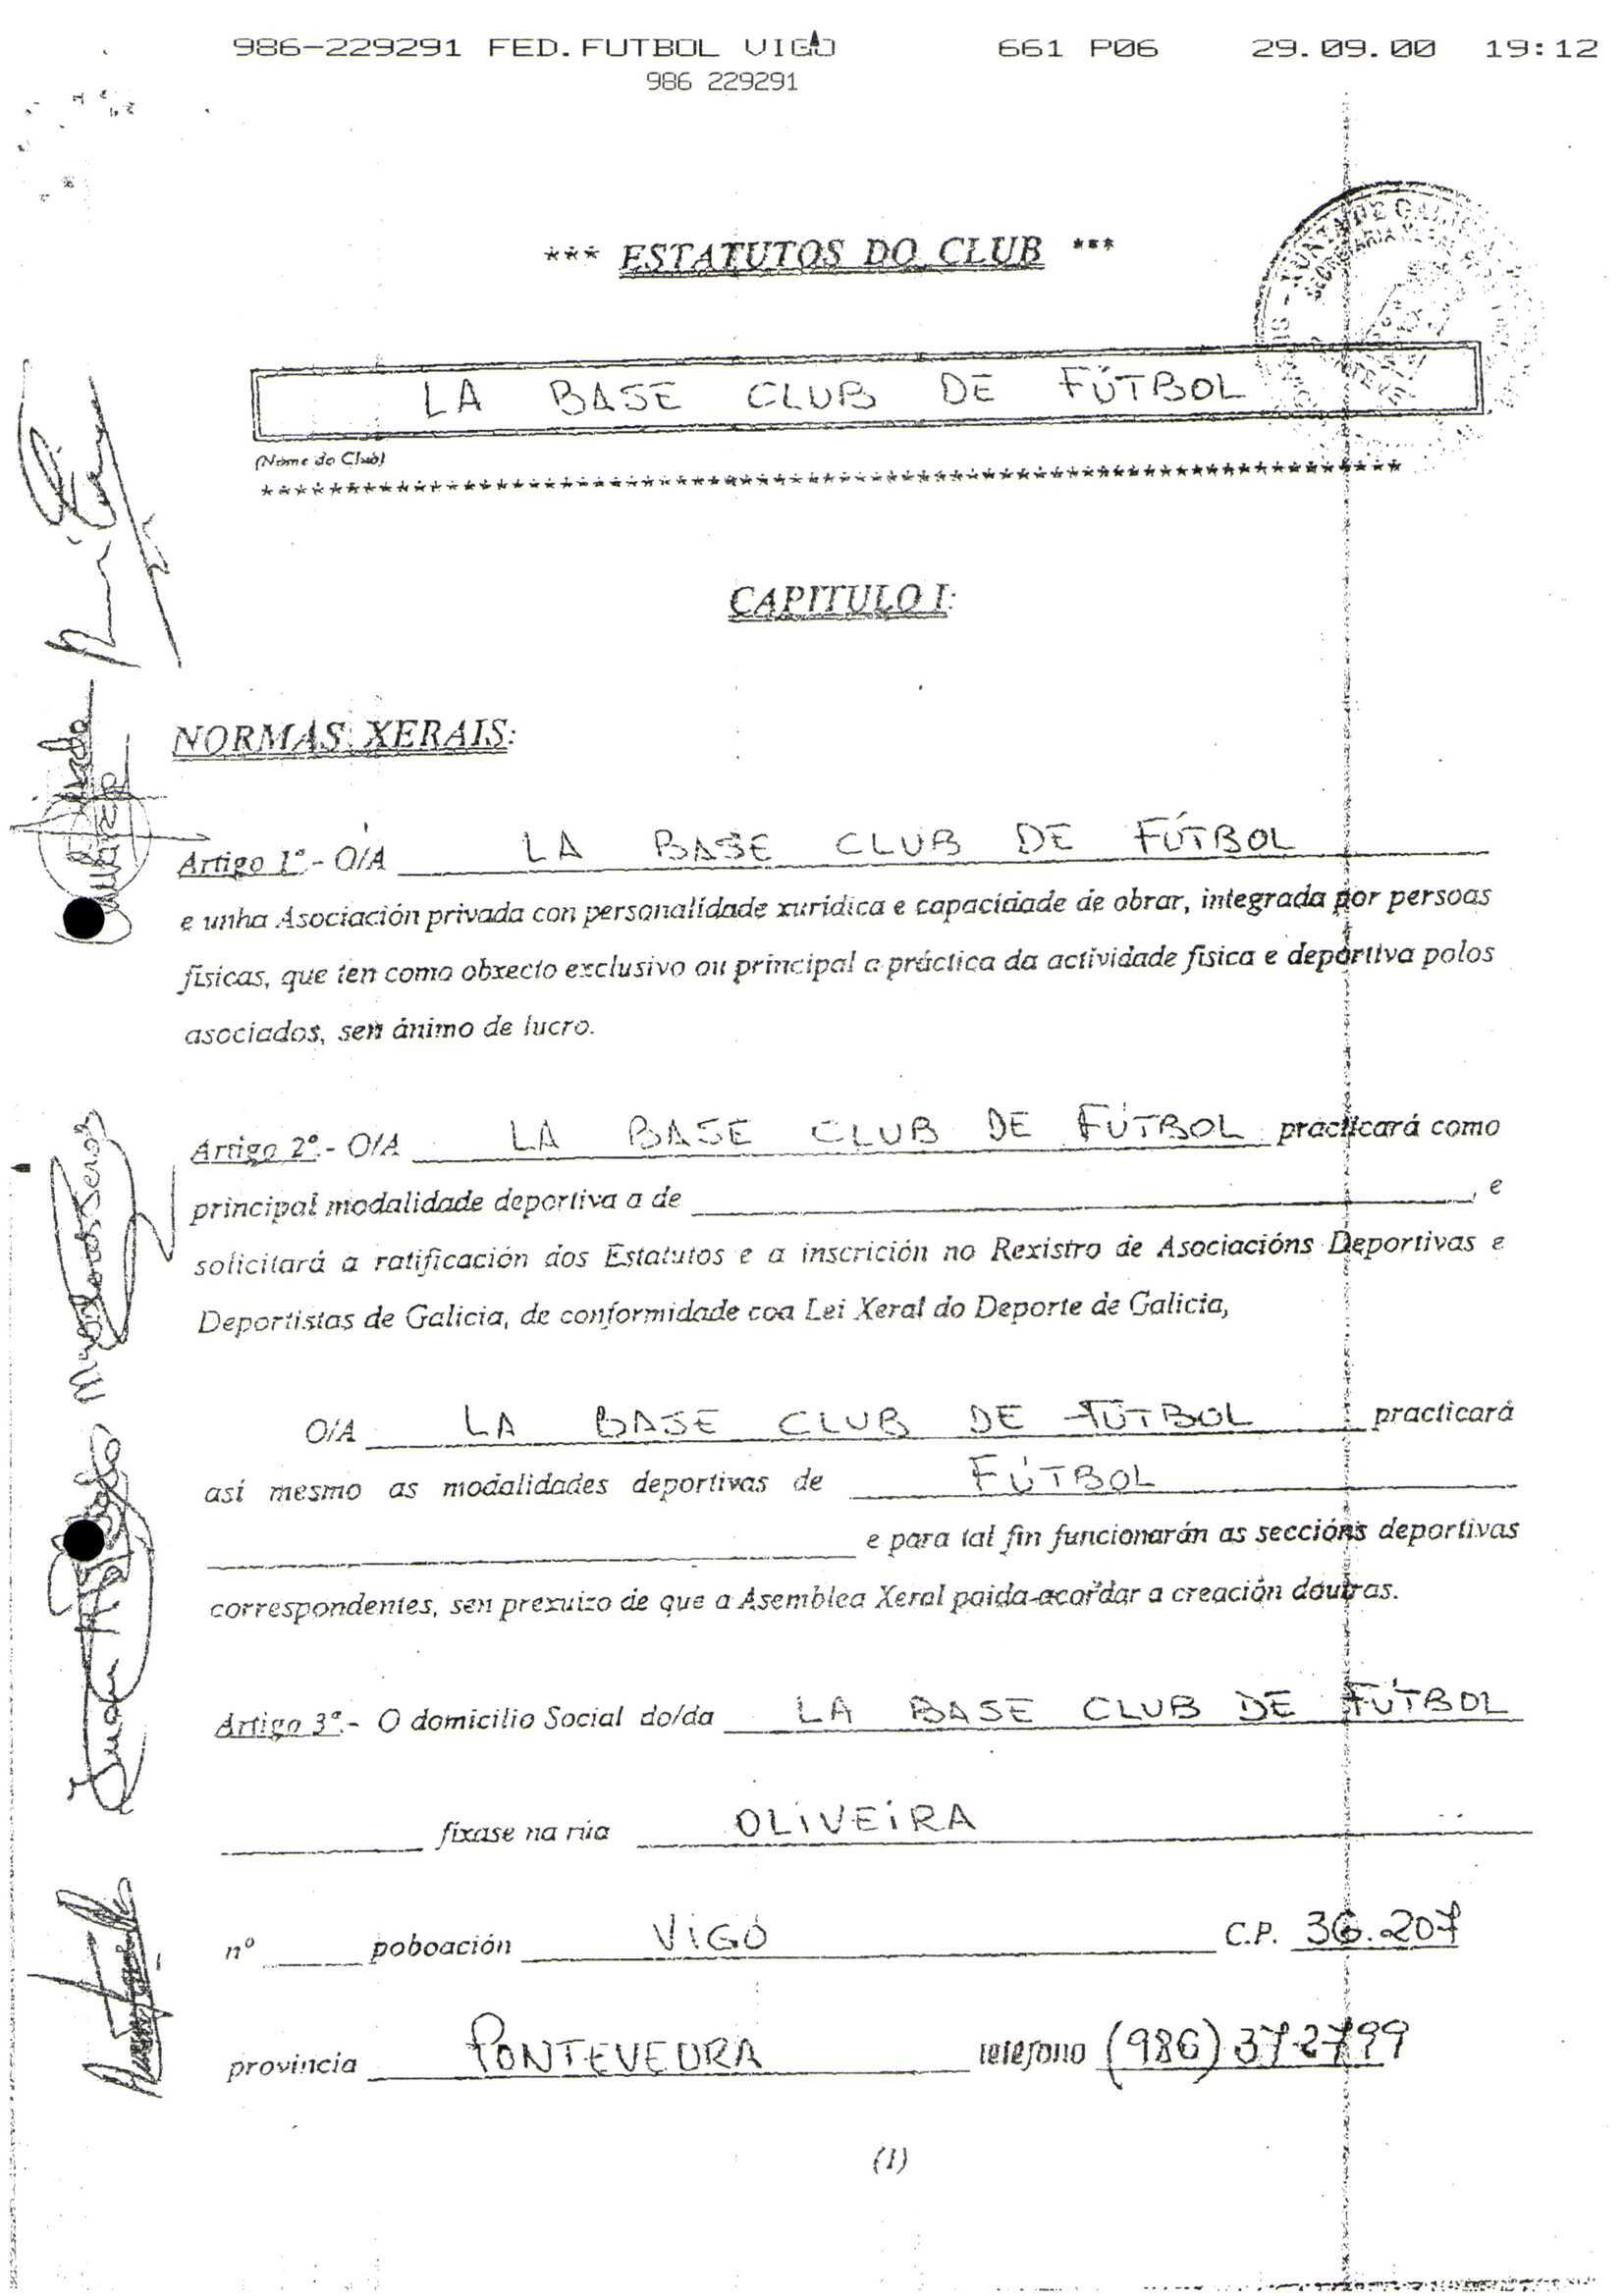 986-229291 FED.FUTBOL VIGO 661 P06 29.09.00 19:12
986 229291
*** ESTATUTOS DO CLUB ***
LA BASE CLUB DE FÚTBOL
(Nome do Club)
CAPITULO I:
NORMAS XERAIS:
Artigo 1º.- O/A LA BASE CLUB DE FÚTBOL
e unha Asociación privada con personalidade xurídica e capacidade de obrar, integrada por persoas
físicas, que ten como obxecto exclusivo ou principal a práctica da actividade física e deportiva polos
asociados, sen ánimo de lucro.
Artigo 2º.- O/A LA BASE CLUB DE FÚTBOL practicará como
principal modalidade deportiva a de , e
solicitará a ratificación dos Estatutos e a inscrición no Rexistro de Asociacións Deportivas e
Deportistas de Galicia, de conformidade coa Lei Xeral do Deporte de Galicia,
O/A LA BASE CLUB DE FÚTBOL practicará
así mesmo as modalidades deportivas de FÚTBOL
e para tal fin funcionarán as seccións deportivas
correspondentes, sen prexuizo de que a Asemblea Xeral poida acordar a creación doutras.
Artigo 3º.- O domicilio Social do/da LA BASE CLUB DE FÚTBOL
fíxase na rúa OLIVEIRA
nº poboación VIGO C.P. 36.207
provincia PONTEVEDRA teléfono (986) 372799
(1)